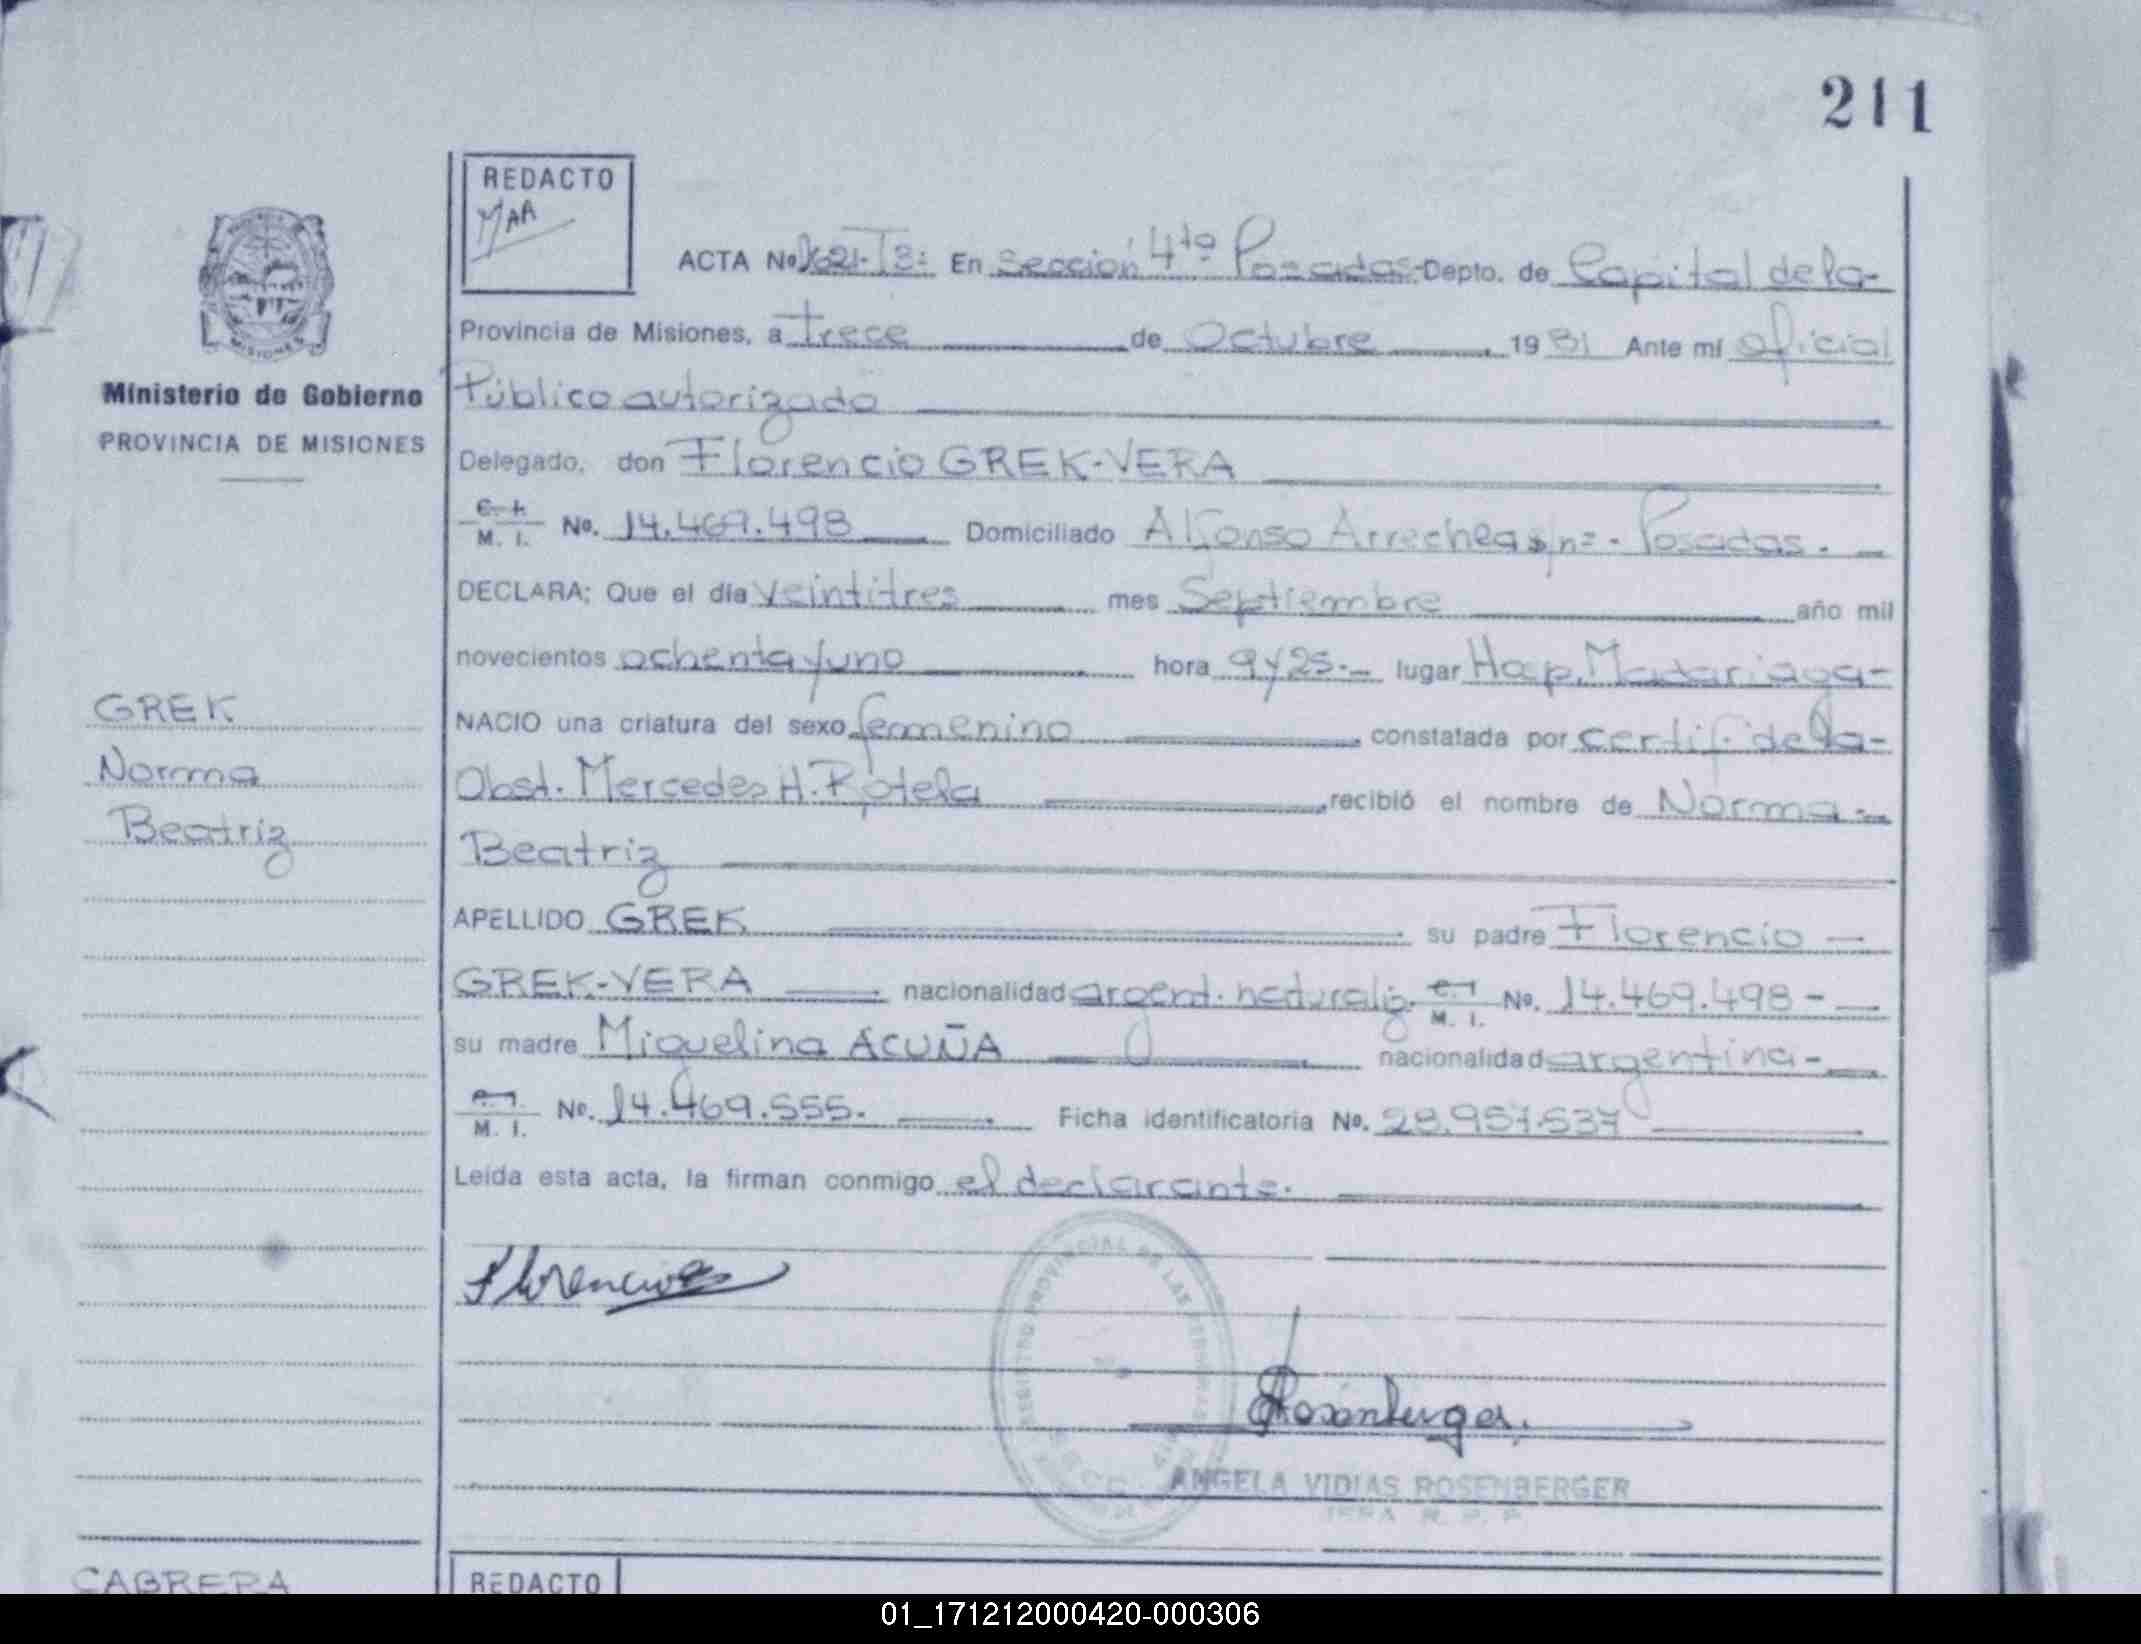 211
REDACTO
MAA
ACTA No 1621-T3: En Sección 4ta Posadas-Depto. de Capital de la-
MISIONES
Provincia de Misiones, a Trece de Octubre 1981 Ante mí oficial
Ministerio de Gobierno
Público autorizado
PROVINCIA DE MISIONES
Delegado, don Florencio GREK-VERA
M. I. No. 14.469.498 Domiciliado Alfonso Arrechea s/nº- Posadas. -
DECLARA; Que el día veintitres mes Septiembre año mil
novecientos ochenta y uno hora 9 y 25.- lugar Hosp. Madariaga-
GREK
NACIO una criatura del sexo femenino constatada por certif. de la-
Norma
Obst. Mercedes H. Rotela recibió el nombre de Norma-
Beatriz
Beatriz
APELLIDO GREK su padre Florencio -
GREK-VERA nacionalidad argent. naturaliz. M. I. No. 14.469.498 -
su madre Miguelina ACUÑA nacionalidad argentina -
M. I. No. 14.469.555. Ficha identificatoria No. 28.957.537
Leída esta acta, la firman conmigo el declarante.
REGISTRO PROVINCIAL DE LAS PERSONAS
Florencio
Rosenberger
ANGELA VIDIAS ROSENBERGER
R. P. P.
CABRERA
REDACTO
01_171212000420-000306